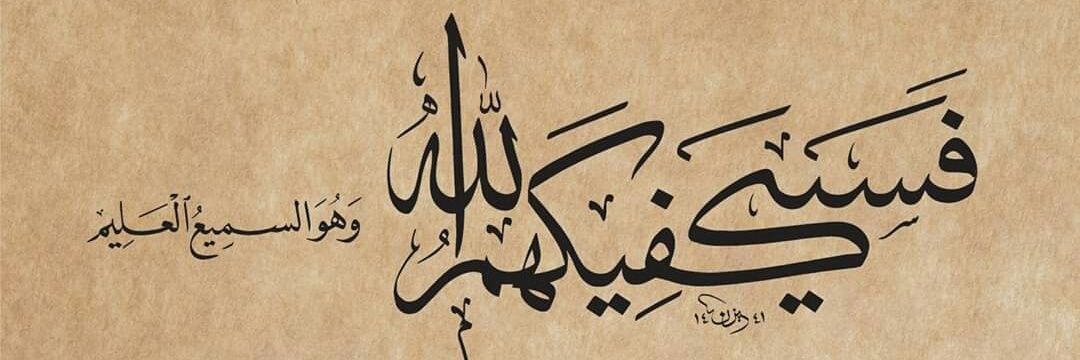 فَسَيَكْفِيكَهُمُ اللهُ
وَهُوَ السمِيعُ ٱلْعَلِيم